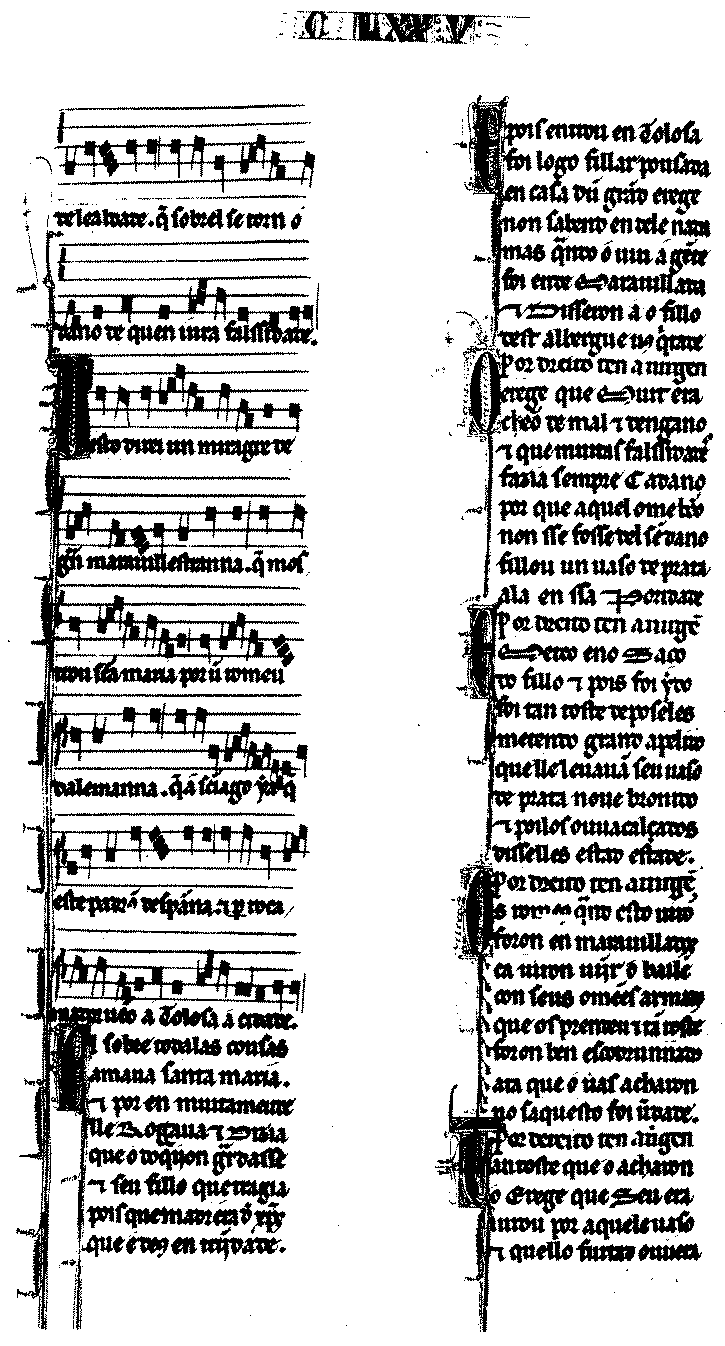 C LXXV
de lealdade. q̃ sobrel se torn o
dano de quen uira falssidade.
desto direi un miragre de
grã marauilla estranna. q̃ mos
trou sc̃a maria por ũ romeu
dalemanna. q̃ a sc̃iago ya q̃
este padrõ despãna. ⁊ ꝑ roca
mador ueo a Tolosa a cidade.
El sobre todalas cousas
amaua santa maria.
⁊ por en muitamente
lle Rogaua ⁊ Dizia
que o do q̃ijon gr̃dasse
⁊ seu fillo que tragia
pois que madre era d̃
que e tr̃es en trĩdade.
Pois entrou en Tolosa
foi logo fillar pousada
en casa dũ grãd erege
non sabend en dele nada
mas q̃ndo o uiu a gẽte
foi ende Marauillada
⁊ Disseron a o fillo
dest albergue uos q̃tade
Por dereito ten a uirgen
O erege que Muit era
chẽo de mal ⁊ dengano
⁊ que muitas falssidades
fazia sempre Cadano
por que aquel ome bõo
non sse fosse del sẽ dano
fillou un uaso de prata
ala en ssa Poridade
Por dereito ten a uirgẽ
E Meteo eno Saco
do fillo ⁊ pois foi ỹdo
foi tan toste depos eles
metendo grand apelido
que lle leuauã seu uaso
de prata noue bronido
⁊ poilos ouu acalçados
disselles estad estade.
Por dereito ten a uirgẽ
Os romeos q̃ndo esto uirõ
foron en marauillados
ca uiron uĩjr o baile
con seus omẽes armados
que os prendeu ⁊ tã toste
foron ben escodrunnados
ata que o uas acharon
no saquest o foi ũdade.
Por dereito ten a uirgen
Tan toste que o acharon
o Erege que Seu era
iurou por aquele uaso
⁊ que llo furtad ouuera